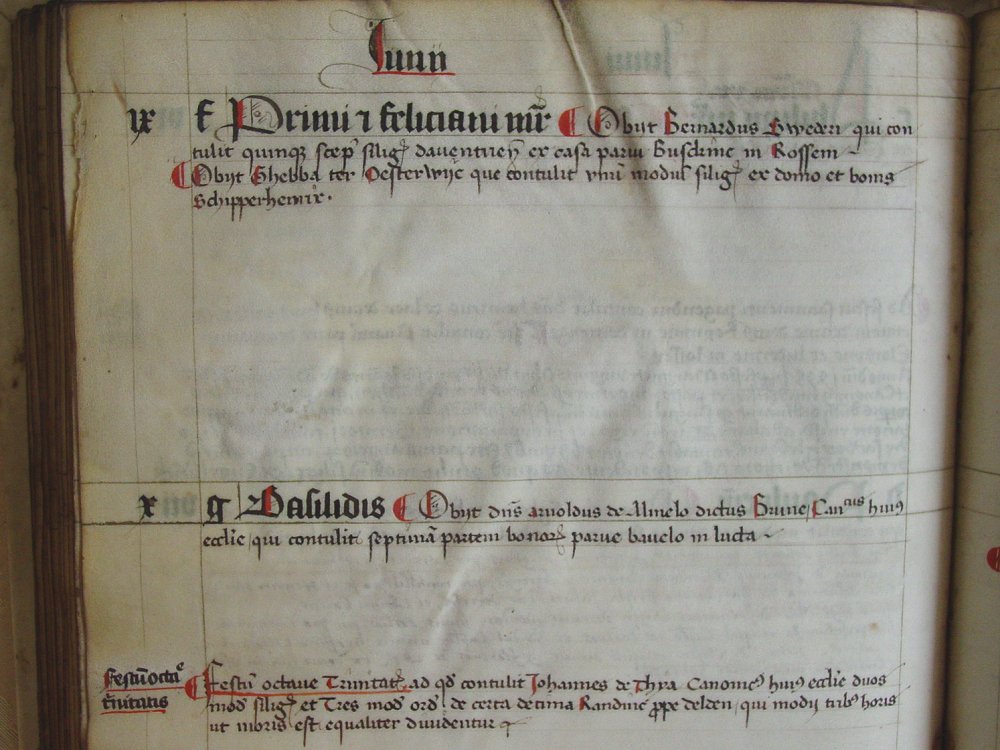 Iunii
ix f Primi ⁊ feliciani mr̄ ¶ Obijt Bernardus Sweders qui con
tulit quinqȝ scep̄ siliḡ dauentrieñ ex casa parui Busckinc in Rossem
¶ Obijt Ghebba ter Oesterwijc que contulit vnū modiū siliḡ ex domo et bonis
Schipperhemix.
x g Basilidis ¶ Obijt dn̄s arnoldus de Almelo dictus Brune, Canᶜᵘˢ huiꝰ
eccl̄ie, qui contulit septimā partem bonoꝝ parue bauelo in lutta
Festū octaᵉ
t̄nitatis
¶ Festū octaue Trinitat̄ ad qd̄ contulit Johannes de Thya Canonicꝰ huiꝰ eccl̄ie duos
mod̄ siliḡ et Tres mod̄ ord̄ de certa decima Randinc ꝓpe delden, qui modij tribꝰ horis
ut moris est equaliter diuidentur